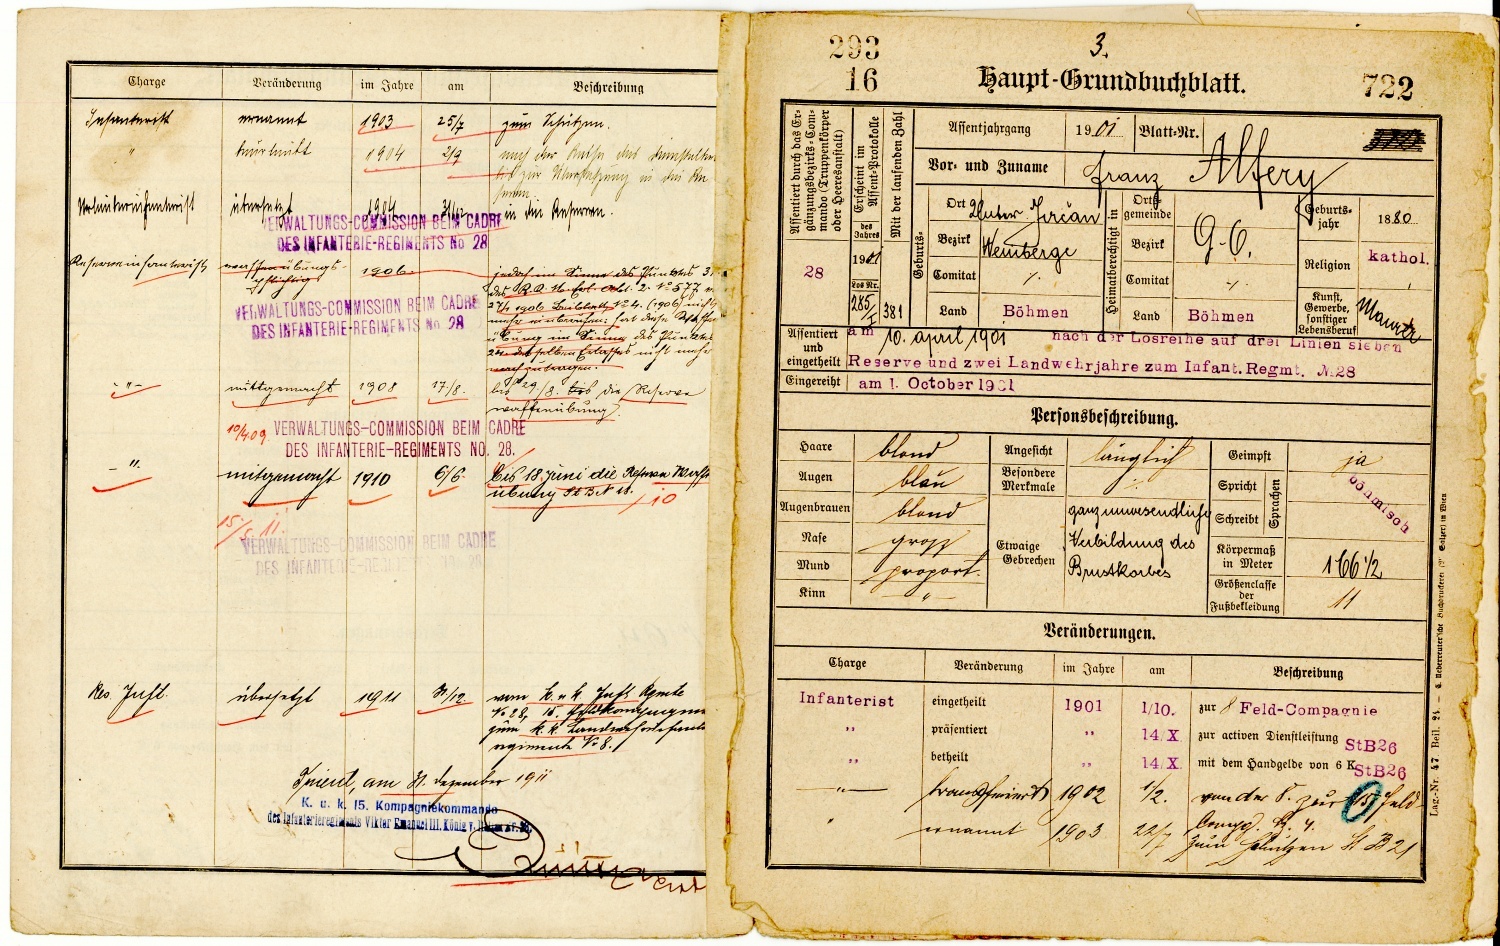 Charge Veränderung im Jahre am Beschreibung
Infanterist ernannt 1903 25/7 zum Schützen.
" beurlaubt 1904 2/9
bis zur Übersetzung in die
übersetzt 1904 31/12 in die Reserve.
VERWALTUNGS-COMMISSION BEIM CADRE
DES INFANTERIE-REGIMENTS No 28
Reserveinfanterist waffenübungs-
pflichtig 1906 jedoch im Sinne des Punktes 3
mehr einberufen; hat diese
Übung im Sinne des Punktes
desselben Erlasses nicht mehr
nachzutragen.
VERWALTUNGS-COMMISSION BEIM CADRE
DES INFANTERIE-REGIMENTS No 28
-"- mitgemacht 1908 17/8. bis 29/8. die Reserve
waffenübung.
10/4 09 VERWALTUNGS-COMMISSION BEIM CADRE
DES INFANTERIE-REGIMENTS NO. 28.
-"- mitgemacht 1910 6/6. bis 18. Juni die
übung St B No 18. /10
15/5 11.
VERWALTUNGS-COMMISSION BEIM CADRE
DES INFANTERIE-REGIMENTS No 28
Res Inft. übersetzt 1911 31/12. vom k. u. k. Inft Rgmte
No 28, 15. Feldkompagnie
zum k. k. Landwehrinfanterie
regimente No 8.
Trient, am 31. Dezember 1911
K. u. k. 15. Kompagniekommando
des Infanterieregiments Viktor Emanuel III. König v. Italien Nr. 28.
293
16
3.
Haupt-Grundbuchblatt.
722
Assentiert durch das Er-
gänzungsbezirks-Com-
mando (Truppenkörper
oder Heeresanstalt)
28
Erscheint im
Assent-Protokolle
des
Jahres
1901
Los Nr.
285/I
Mit der laufenden Zahl
381
Assentjahrgang 1901 Blatt-Nr.
Vor- und Zuname Franz Alfery
Geburts-
Ort Unter Jirčan
Bezirk Weinberge
Comitat ∙/.
Land Böhmen
Heimatberechtigt in
Orts-
gemeinde
Bezirk G. O.
Comitat ∙/.
Land Böhmen
Geburts-
jahr 1880
Religion kathol.
Kunst,
Gewerbe,
sonstiger
Lebensberuf Maurer
Assentiert
und
eingetheilt
am 10. April 1901 nach der Losreihe auf drei Linien sieben
Reserve und zwei Landwehrjahre zum Infant. Regmt. №28
Eingereiht am 1. October 1901
Personsbeschreibung.
Haare blond
Augen blau
Augenbrauen blond
Nase gross
Mund proport.
Kinn -"-
Angesicht länglich
Besondere
Merkmale ∙/.
Etwaige
Gebrechen
ganz unwesendliche
Verbildung des
Brustkorbes
Geimpft ja
Spricht
Schreibt
Sprachen
böhmisch
Körpermaß
in Meter 166 1/2
Größenclasse
der
Fußbekleidung 11
Veränderungen.
Charge Veränderung im Jahre am Beschreibung
Infanterist eingetheilt 1901 1/10. zur 8 Feld-Compagnie
" präsentiert " 14/X. zur activen Dienstleistung StB26
" betheilt " 14/X. mit dem Handgelde von 6 K StB26
-"- transferiert 1902 1/2. von der 8. zur 15 Feld-
Comp.
" ernannt 1903 22/7 zum Schützen St B 21
Lag.-Nr. 47 Beil. 24.